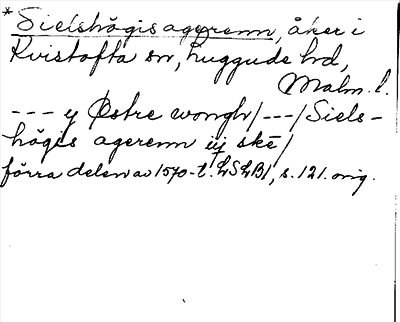 *Sielshögis agerenn, åker i
Kvistofta sn, Luggude hd,
Malm. l.
--- y Østre wongh/---/Siels-
högis agerenn iij ske/
förra delen av 1570-t. LSLB1, s. 121. orig.